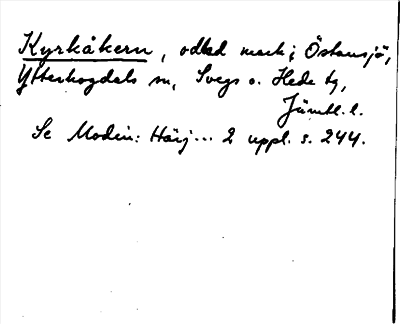 Kyrkåkern, odlad mark i Östansjö,
Ytterhogdals sn, Svegs o. Hede tg,
Jämtl. l.
Se Modin: Härj... 2 uppl. s. 244.